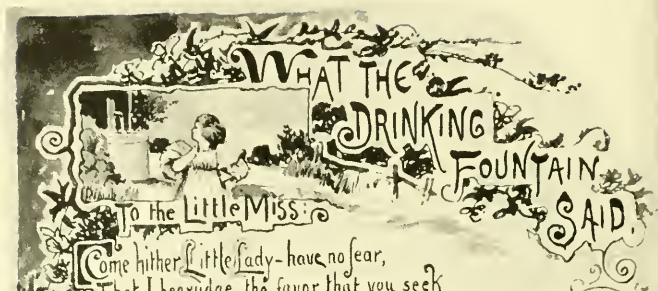 WHAT THE
DRINKING
FOUNTAIN
SAID.
To the Little Miss:
Come hither Little Lady-have no fear,
That I begrudge the favor that you seek